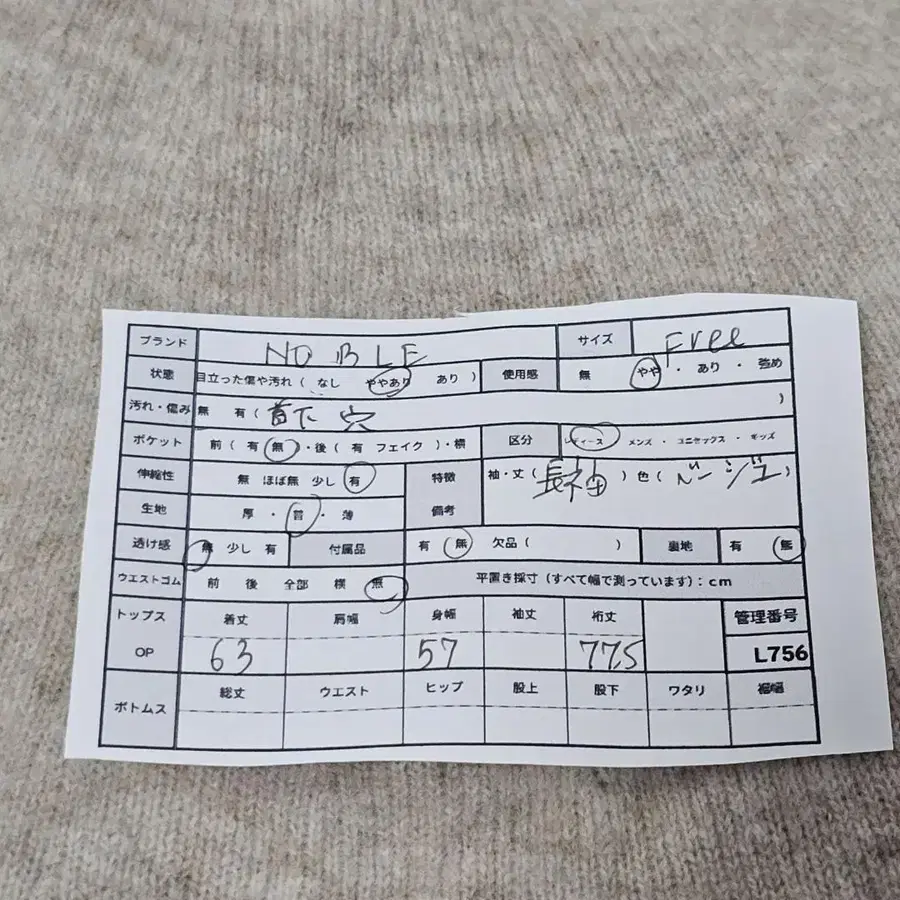 ブランド NOBLE サイズ Free
状態 目立った傷や汚れ ( なし ややあり あり ) 使用感 無 やや ・ あり ・ 強め
汚れ・傷み 無 有 ( 首下 穴 )
ポケット 前 ( 有 無 ) ・後 ( 有 フェイク ) ・横 区分 レディース メンズ ・ ユニセックス ・ キッズ
伸縮性 無 ほぼ無 少し 有 特徴 備考 袖・丈 ( 長袖 ) 色 ( ベージュ )
生地 厚 ・ 普 ・ 薄
透け感 無 少し 有 付属品 有 無 欠品 ( ) 裏地 有 無
ウエストゴム 前 後 全部 横 無 平置き採寸 (すべて幅で測っています) : cm
トップス 着丈 肩幅 身幅 袖丈 裄丈 管理番号
OP 63 57 77.5 L756
ボトムス 総丈 ウエスト ヒップ 股上 股下 ワタリ 裾幅